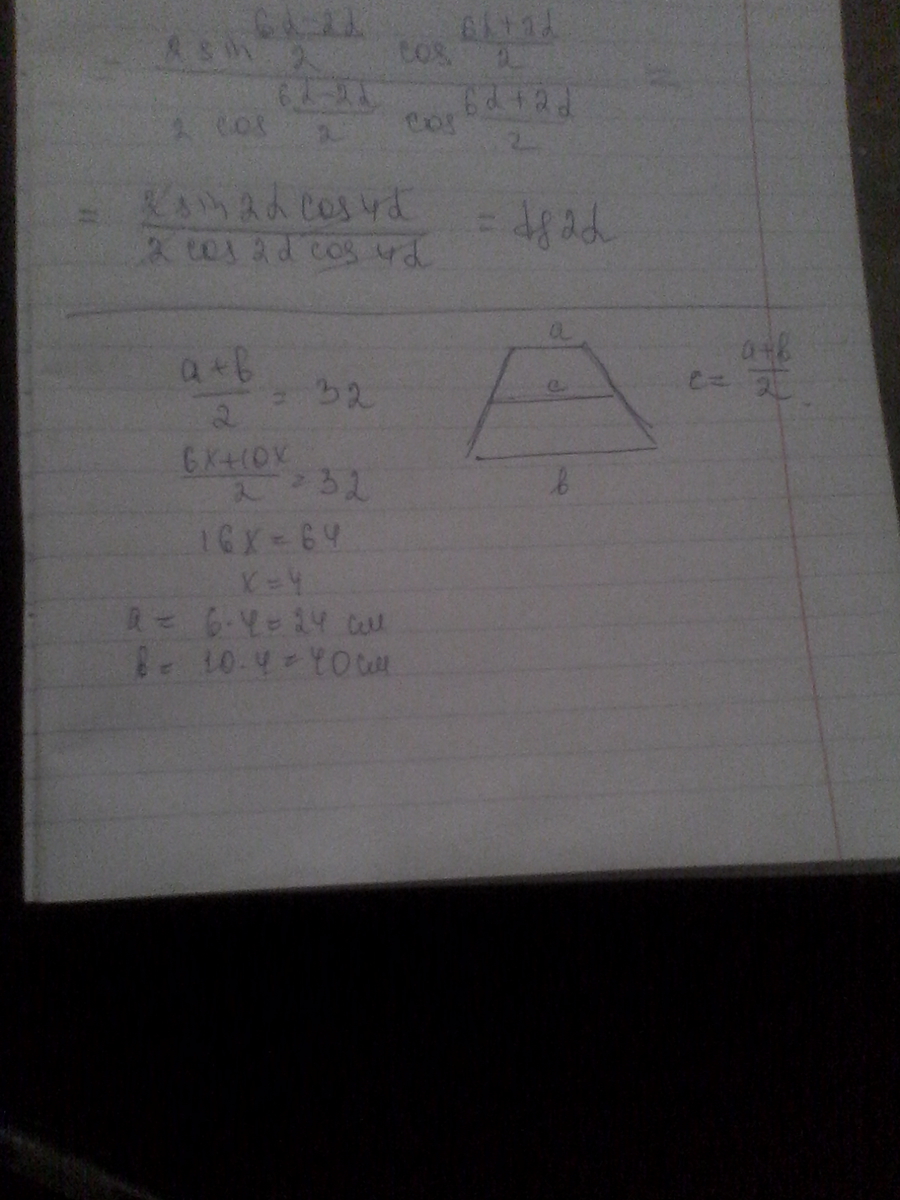 2 sin (6α-2α)/2 cos (6α+2α)/2
2 cos (6α-2α)/2 cos (6α+2α)/2 =
= (2 sin 2α cos 4α)/(2 cos 2α cos 4α) = tg 2α
(a+b)/2 = 32
a
c
b
c = (a+b)/2
(6x+10x)/2 = 32
16x = 64
x = 4
a = 6·4 = 24 см
b = 10·4 = 40 см